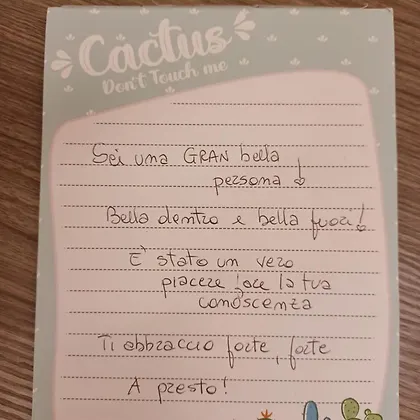 Cactus
Don't Touch me
Sei una GRAN bella
persona!
Bella dentro e bella fuori!
E' stato un vero
piacere fare la tua
conoscenza
Ti abbraccio forte, forte
A presto!